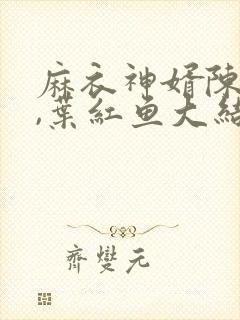 麻衣神婿陳
,葉紅鱼大結
齊變元